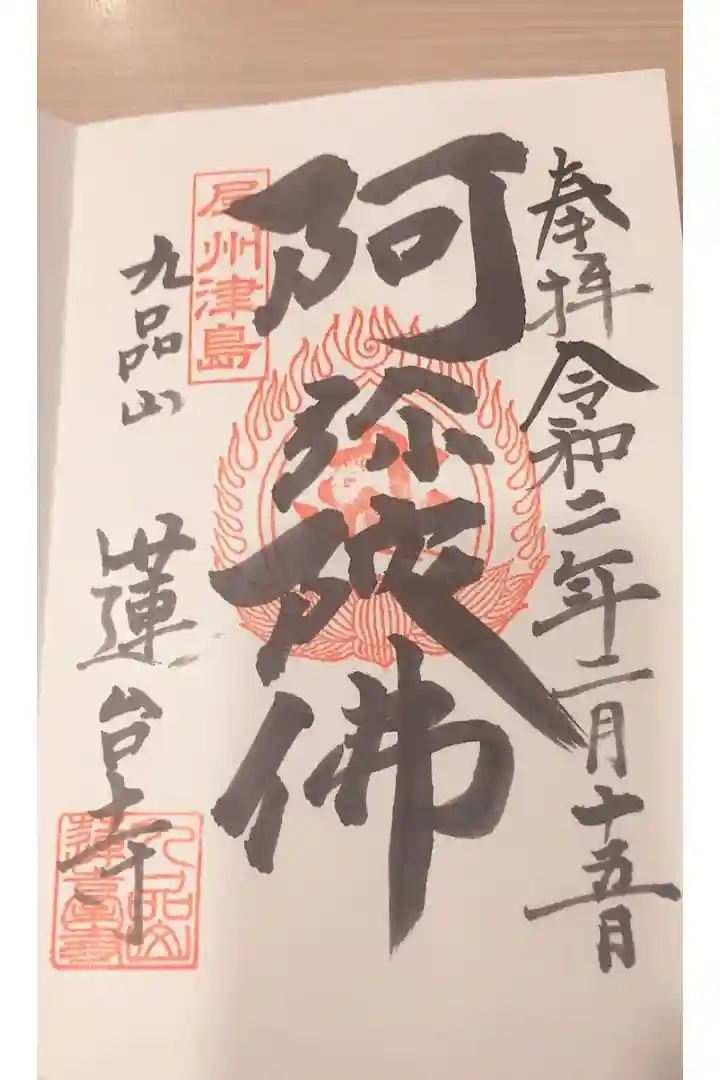 奉拝 令和二年二月十五日
阿弥陀佛
尾州津島
九品山 蓮台寺
九品山蓮台寺